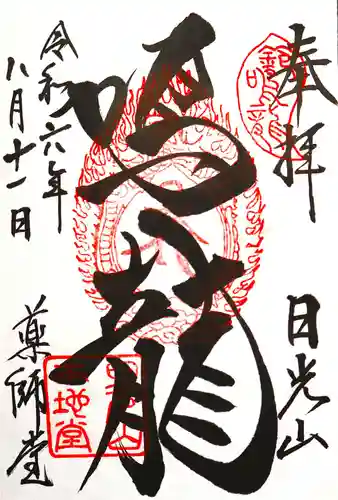 奉拝
日光山
鳴龍
令和六年
八月十一日
薬師堂